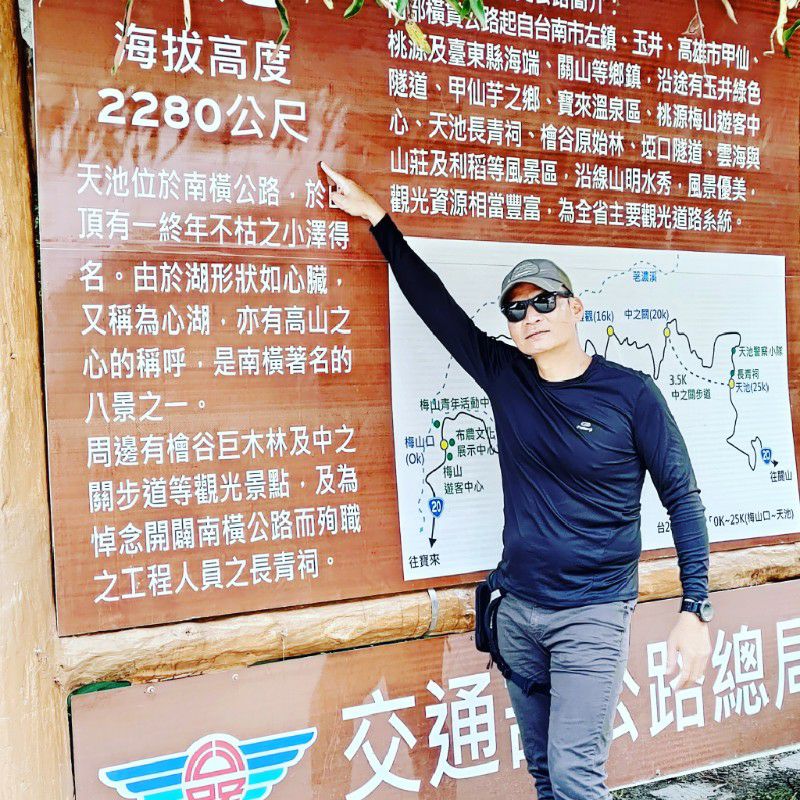 海拔高度
2280公尺
天池位於南橫公路，於
頂有一終年不枯之小澤得
名。由於湖形狀如心臟，
又稱為心湖，亦有高山之
心的稱呼，是南橫著名的
八景之一。
周邊有檜谷巨木林及中之
關步道等觀光景點，及為
悼念開闢南橫公路而殉職
之工程人員之長青祠。
部橫貫公路起自台南市左鎮、玉井、高雄市甲仙、
桃源及臺東縣海端、關山等鄉鎮，沿途有玉井綠色
隧道、甲仙芋之鄉、寶來溫泉區、桃源梅山遊客中
心、天池長青祠、檜谷原始林、埡口隧道、雲海與
山莊及利稻等風景區，沿線山明水秀，風景優美，
觀光資源相當豐富，為全省主要觀光道路系統。
荖濃溪
(16k)
中之關(20k)
天池警察小隊
長青祠
天池(25k)
3.5K
中之關步道
梅山青年活動中
梅山口
(0k)
布農文化
展示中心
梅山
遊客中心
20
往寶來
20
往關山
0K~25K(梅山口~天池)
交通 公路總局